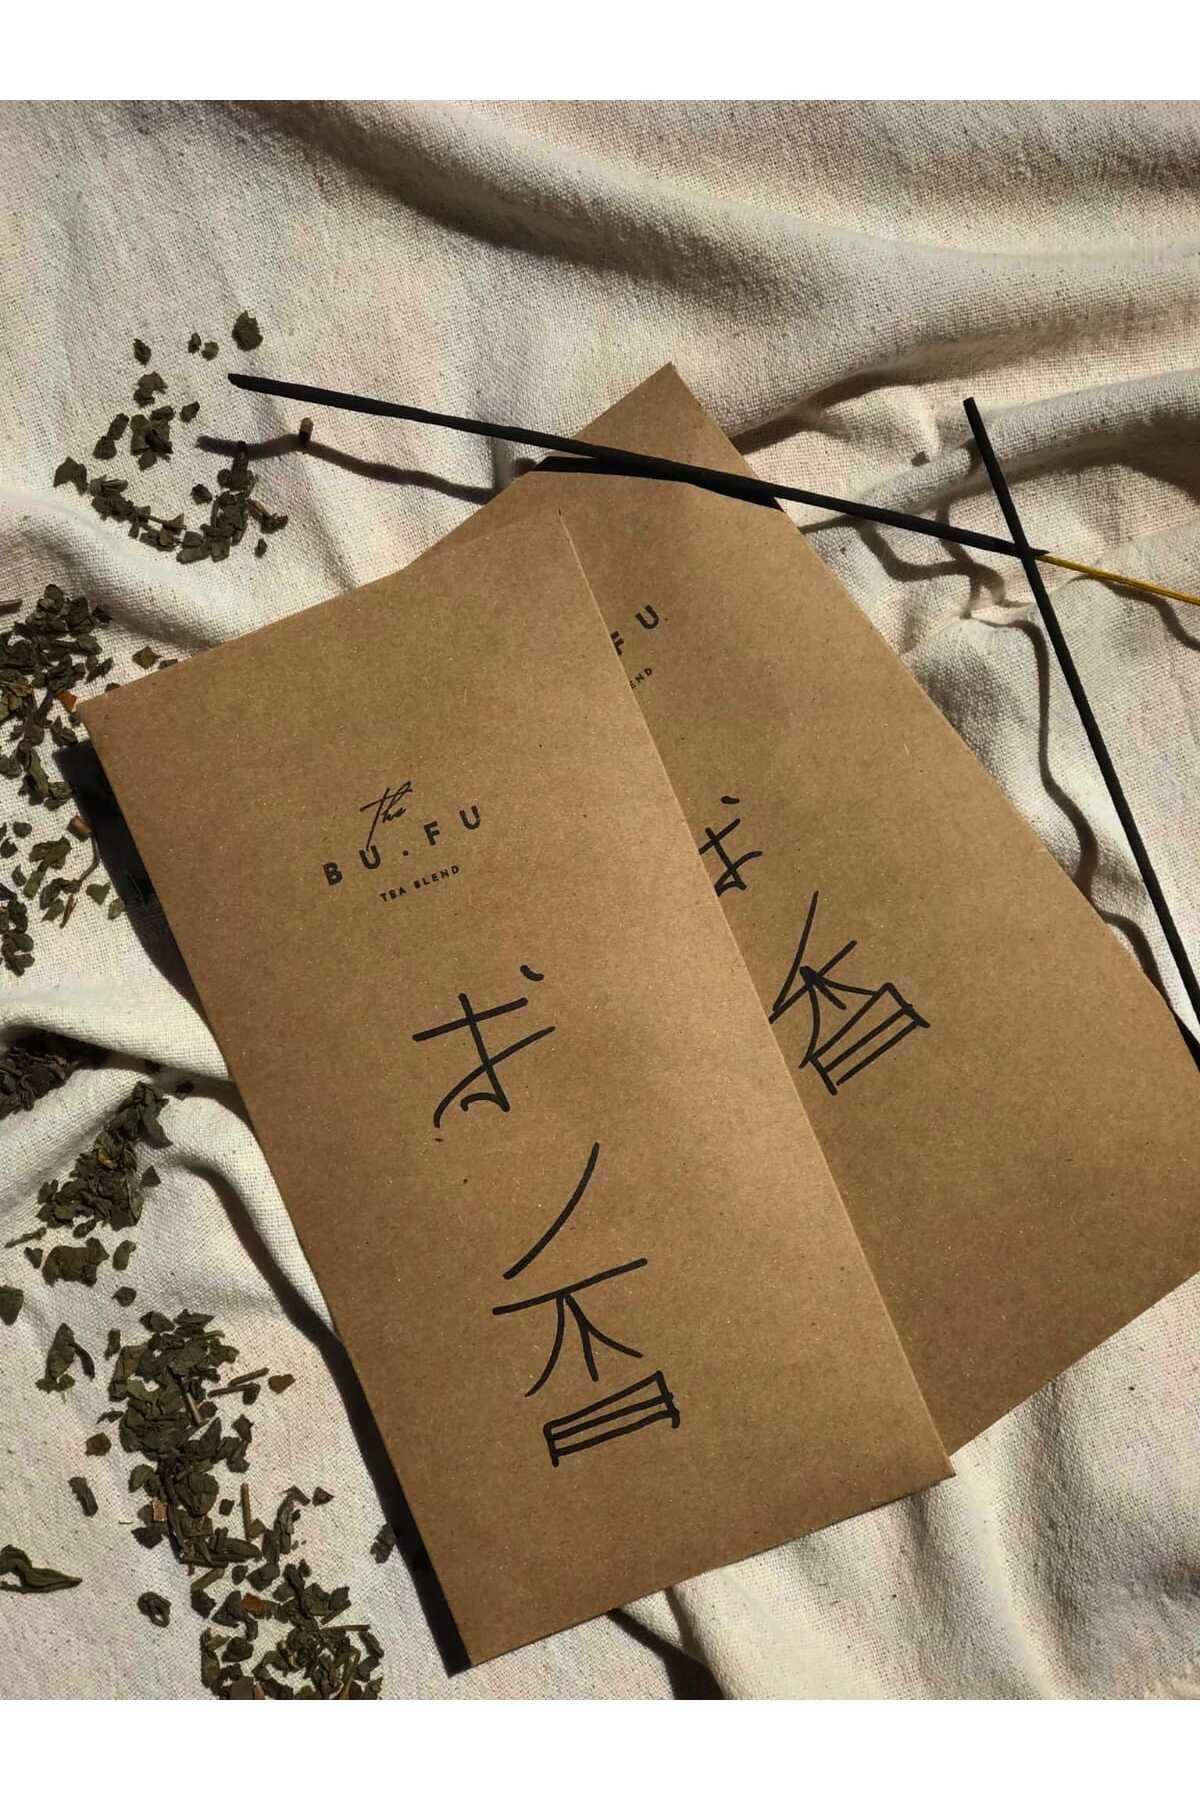 the
BU.FU
TEA BLEND
お香
FU
END
お香